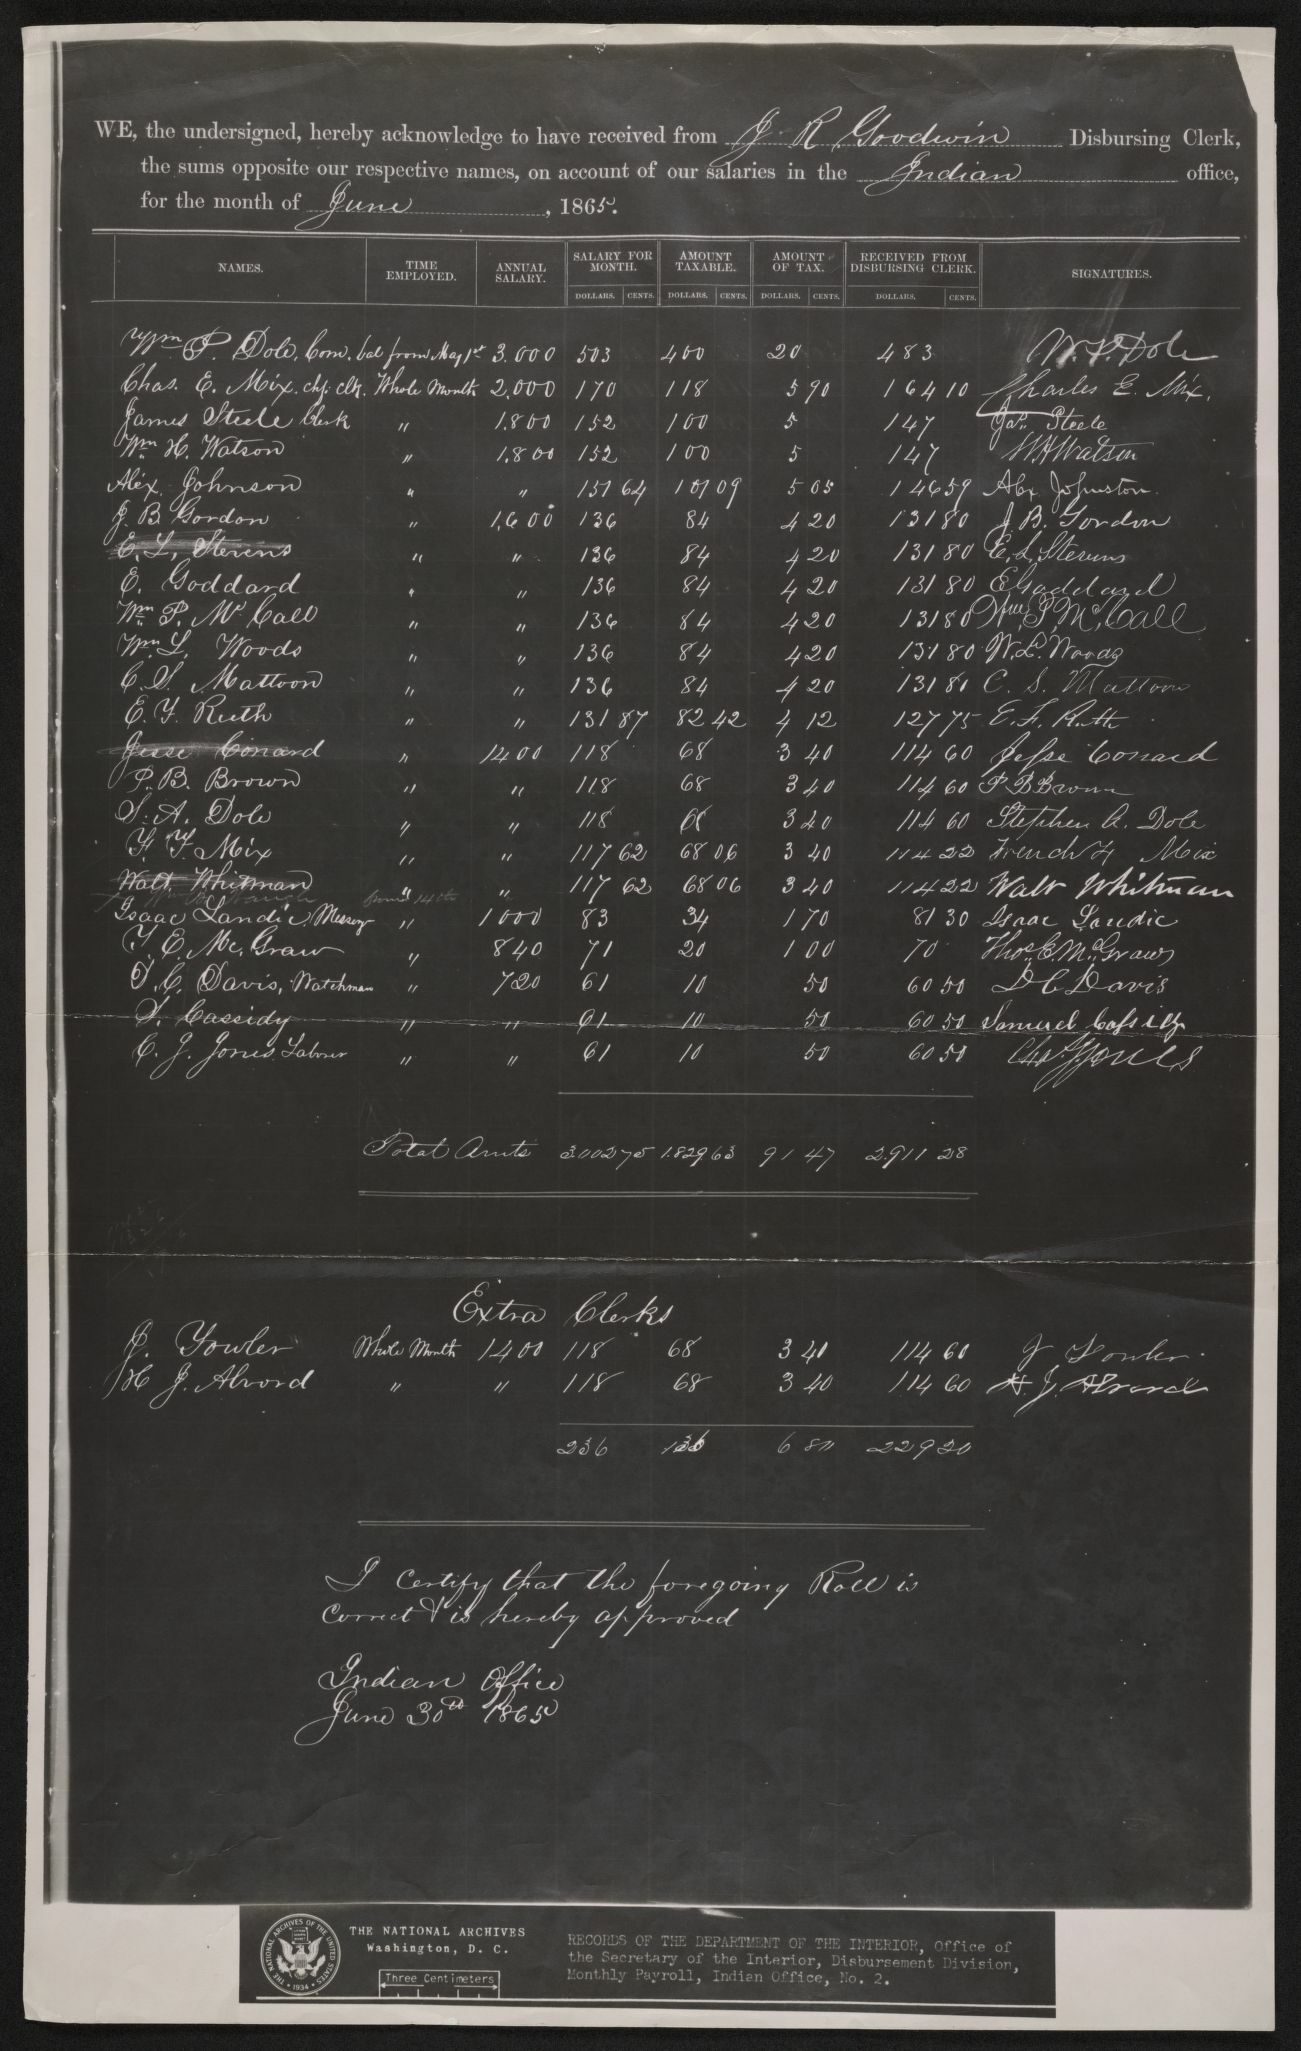 WE, the undersigned, hereby acknowledge to have received from J R Goodwin Disbursing Clerk,
the sums opposite our respective names, on account of our salaries in the Indian office,
for the month of June, 1865.
NAMES. TIME EMPLOYED. ANNUAL SALARY. SALARY FOR MONTH. AMOUNT TAXABLE. AMOUNT OF TAX. RECEIVED FROM DISBURSING CLERK. SIGNATURES.
DOLLARS. CENTS. DOLLARS. CENTS. DOLLARS. CENTS. DOLLARS. CENTS.
Wm P. Dole, Com. bal from May 1st 3.000 503 400 20 483 W. P. Dole
Chas. E. Mix. chf. clk. Whole Month 2,000 170 118 5 90 164 10 Charles E. Mix.
James Steele Clerk " 1.800 152 100 5 147 Jas. Steele
Wm H. Watson " 1.800 152 100 5 147 W H Watson
Alex. Johnson " " 151 64 101 09 5 05 146 59 Alex Johnston
J. B. Gordon " 1,600 136 84 4 20 131 80 J. B. Gordon
E. L. Stevens " " 136 84 4 20 131 80 E. L. Stevens
E. Goddard " " 136 84 4 20 131 80 E Goddard
Wm P. Mc Call " " 136 84 4 20 131 80 Wm. P. Mc. Call
Wm. L. Woods " " 136 84 4 20 131 80 W. L. Woods
C. S. Mattoon " " 136 84 4 20 131 80 C. S. Mattoon
E. F. Ruth " " 131 87 82 42 4 12 127 75 E. F. Ruth
Jesse Conard " 1400 118 68 3 40 114 60 Jesse Conard
P. B. Brown " " 118 68 3 40 114 60 P B Brown
S. A. Dole " " 118 68 3 40 114 60 Stephen A. Dole
F. F. Mix " " 117 62 68 06 3 40 114 22 French F Mix
Walt Whitman " " 117 62 68 06 3 40 114 22 Walt Whitman
Isaac Landic, Messgr " 1000 83 34 1 70 81 30 Isaac Landic
T. E. Mc. Graw " 840 71 20 1 00 70 Thos. E. Mc. Graw
D. C. Davis, Watchman " 720 61 10 50 60 50 D C Davis
S. Cassidy " " 61 10 50 60 50 Samuel Cassidy
C. J. Jones Laborer " " 61 10 50 60 50 Chas. J. Jones
Total Amts 3.002 75 1.829 63 91 47 2.911 28
Extra Clerks
J. Fowler Whole Month 1400 118 68 3 40 114 60 J Fowler
H J. Alvord " " 118 68 3 40 114 60 H. J. Alvord
236 136 6 80 229 20
I certify that the foregoing Roll is
correct & is hereby approved
Indian Office
June 30th 1865
THE NATIONAL ARCHIVES
Washington, D. C.
Three Centimeters
RECORDS OF THE DEPARTMENT OF THE INTERIOR, Office of
the Secretary of the Interior, Disbursement Division,
Monthly Payroll, Indian Office, No. 2.
THE NATIONAL ARCHIVES OF THE UNITED STATES
1934